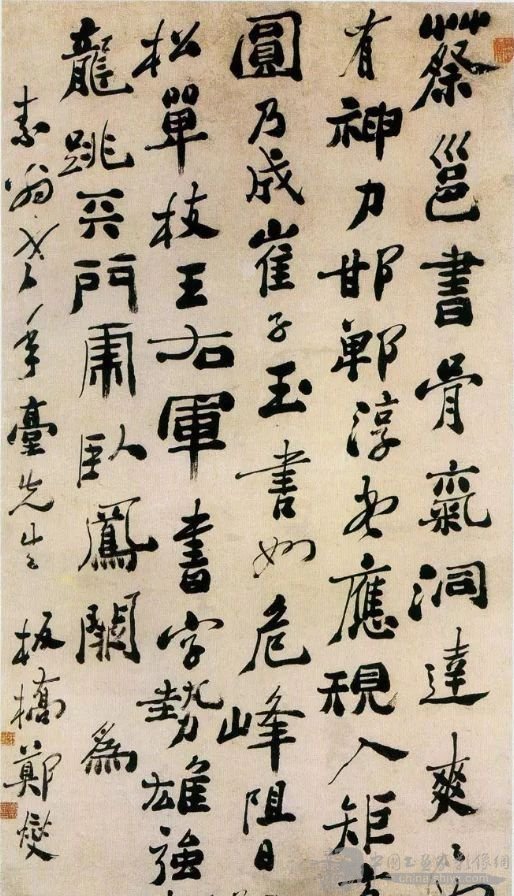 蔡邕書骨氣洞達爽〻
有神力邯鄲淳書應規入矩
圓乃成崔子玉書如危峰阻日
松單枝王右軍書字勢雄強
龍跳天門虎臥鳳闕 為
素翁老年臺先生 板橋鄭燮